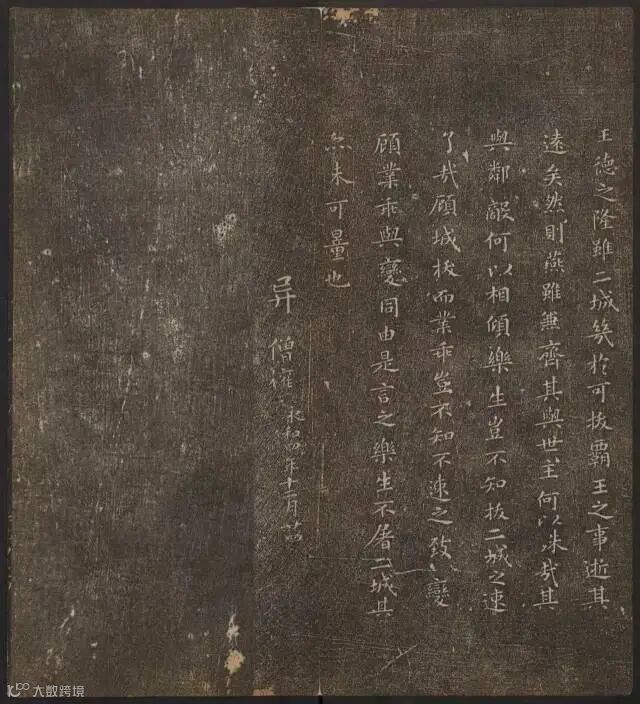 王德之隆雖二城幾於可拔霸王之事逝其
遠矣然則燕雖兼齊其與世主何以殊哉其
與鄰敵何以相傾樂生豈不知拔二城之速
了哉顧城拔而業乖豈不知不速之致變
顧業乖與變同由是言之樂生不屠二城其
亦未可量也
异 僧權
永和四年十二月
大数跨境